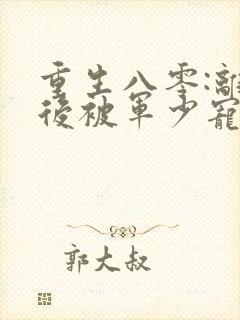 重生八零:離
後被軍少寵
郭大叔